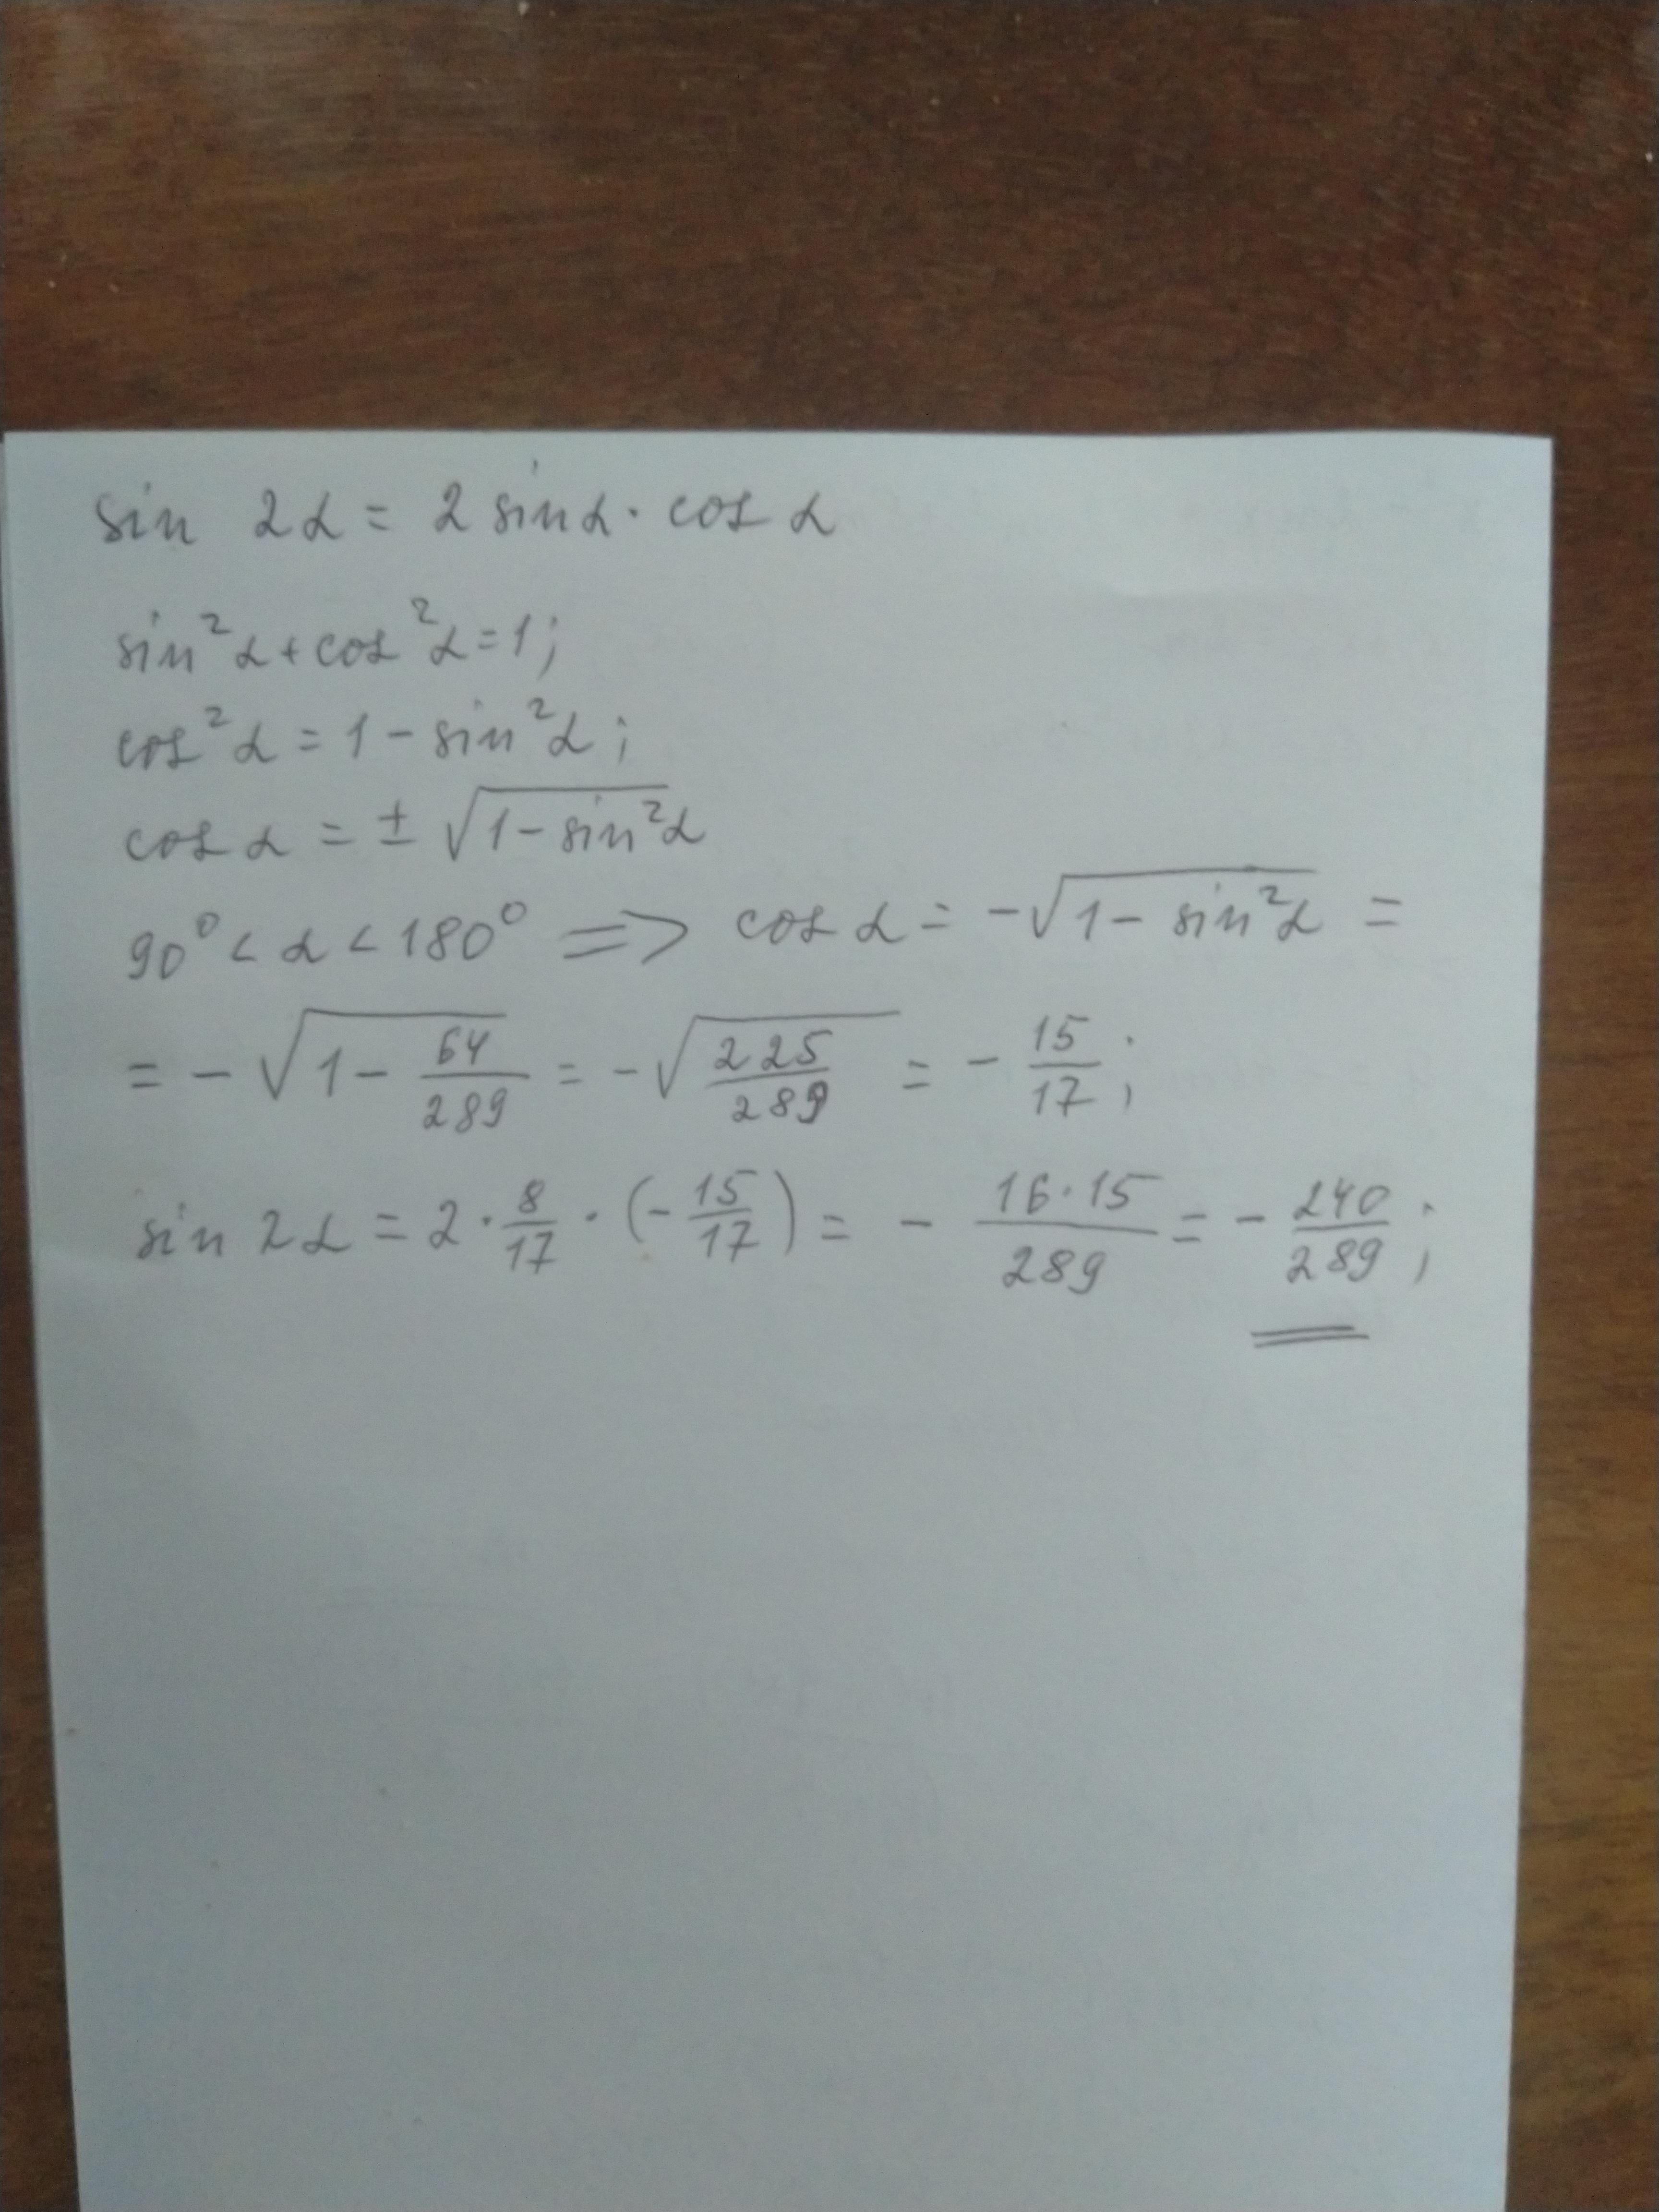 sin 2α = 2 sinα · cos α
sin²α + cos²α = 1;
cos²α = 1 - sin²α;
cos α = ± √(1 - sin²α)
90° < α < 180° => cos α = -√(1 - sin²α) =
= - √(1 - 64/289) = -√(225/289) = - 15/17;
sin 2α = 2 · 8/17 · (- 15/17) = - 16·15/289 = - 240/289;